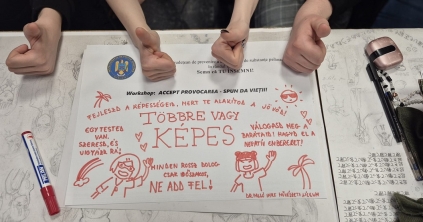 Workshop: ACCEPT PROVOCAREA - SPUN DA VIEȚII!
FEJLESZD A KÉPESSÉGEIDET, MERT TE ALAKÍTOD A JÖVŐD!
TÖBBRE VAGY
KÉPES
EGY TESTED
VAN,
SZERESD, ÉS
VIGYÁZZ RÁ!
VÁLOGASD MEG A
BARÁTAID! HAGYD EL A
NEGATÍV EMBEREKET!
MINDEN ROSSZ DOLOG
CSAK IDŐLEGES,
NE ADD FEL!